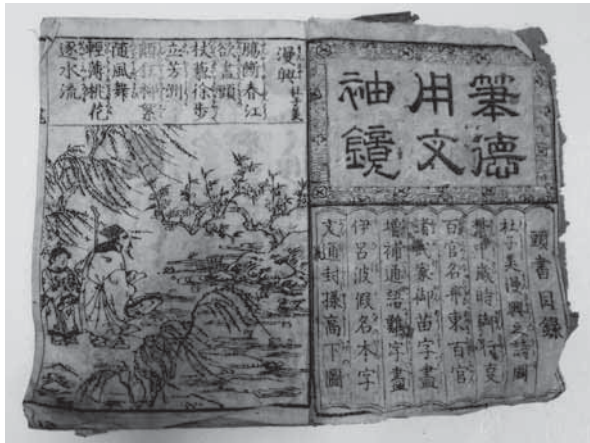 筆德
用文
袖鏡
頭書目錄
杜子美漫興之詩圖
禁中歲時御行
百官名并東百官
諸武家御苗字盡
增補通俗難字盡
伊呂波假名本字
文通封樣高下圖
漫興 杜子美
腸斷春江
欲盡頭
杖藜徐步
立芳洲
顛狂柳絮
隨風舞
輕薄桃花
逐水流